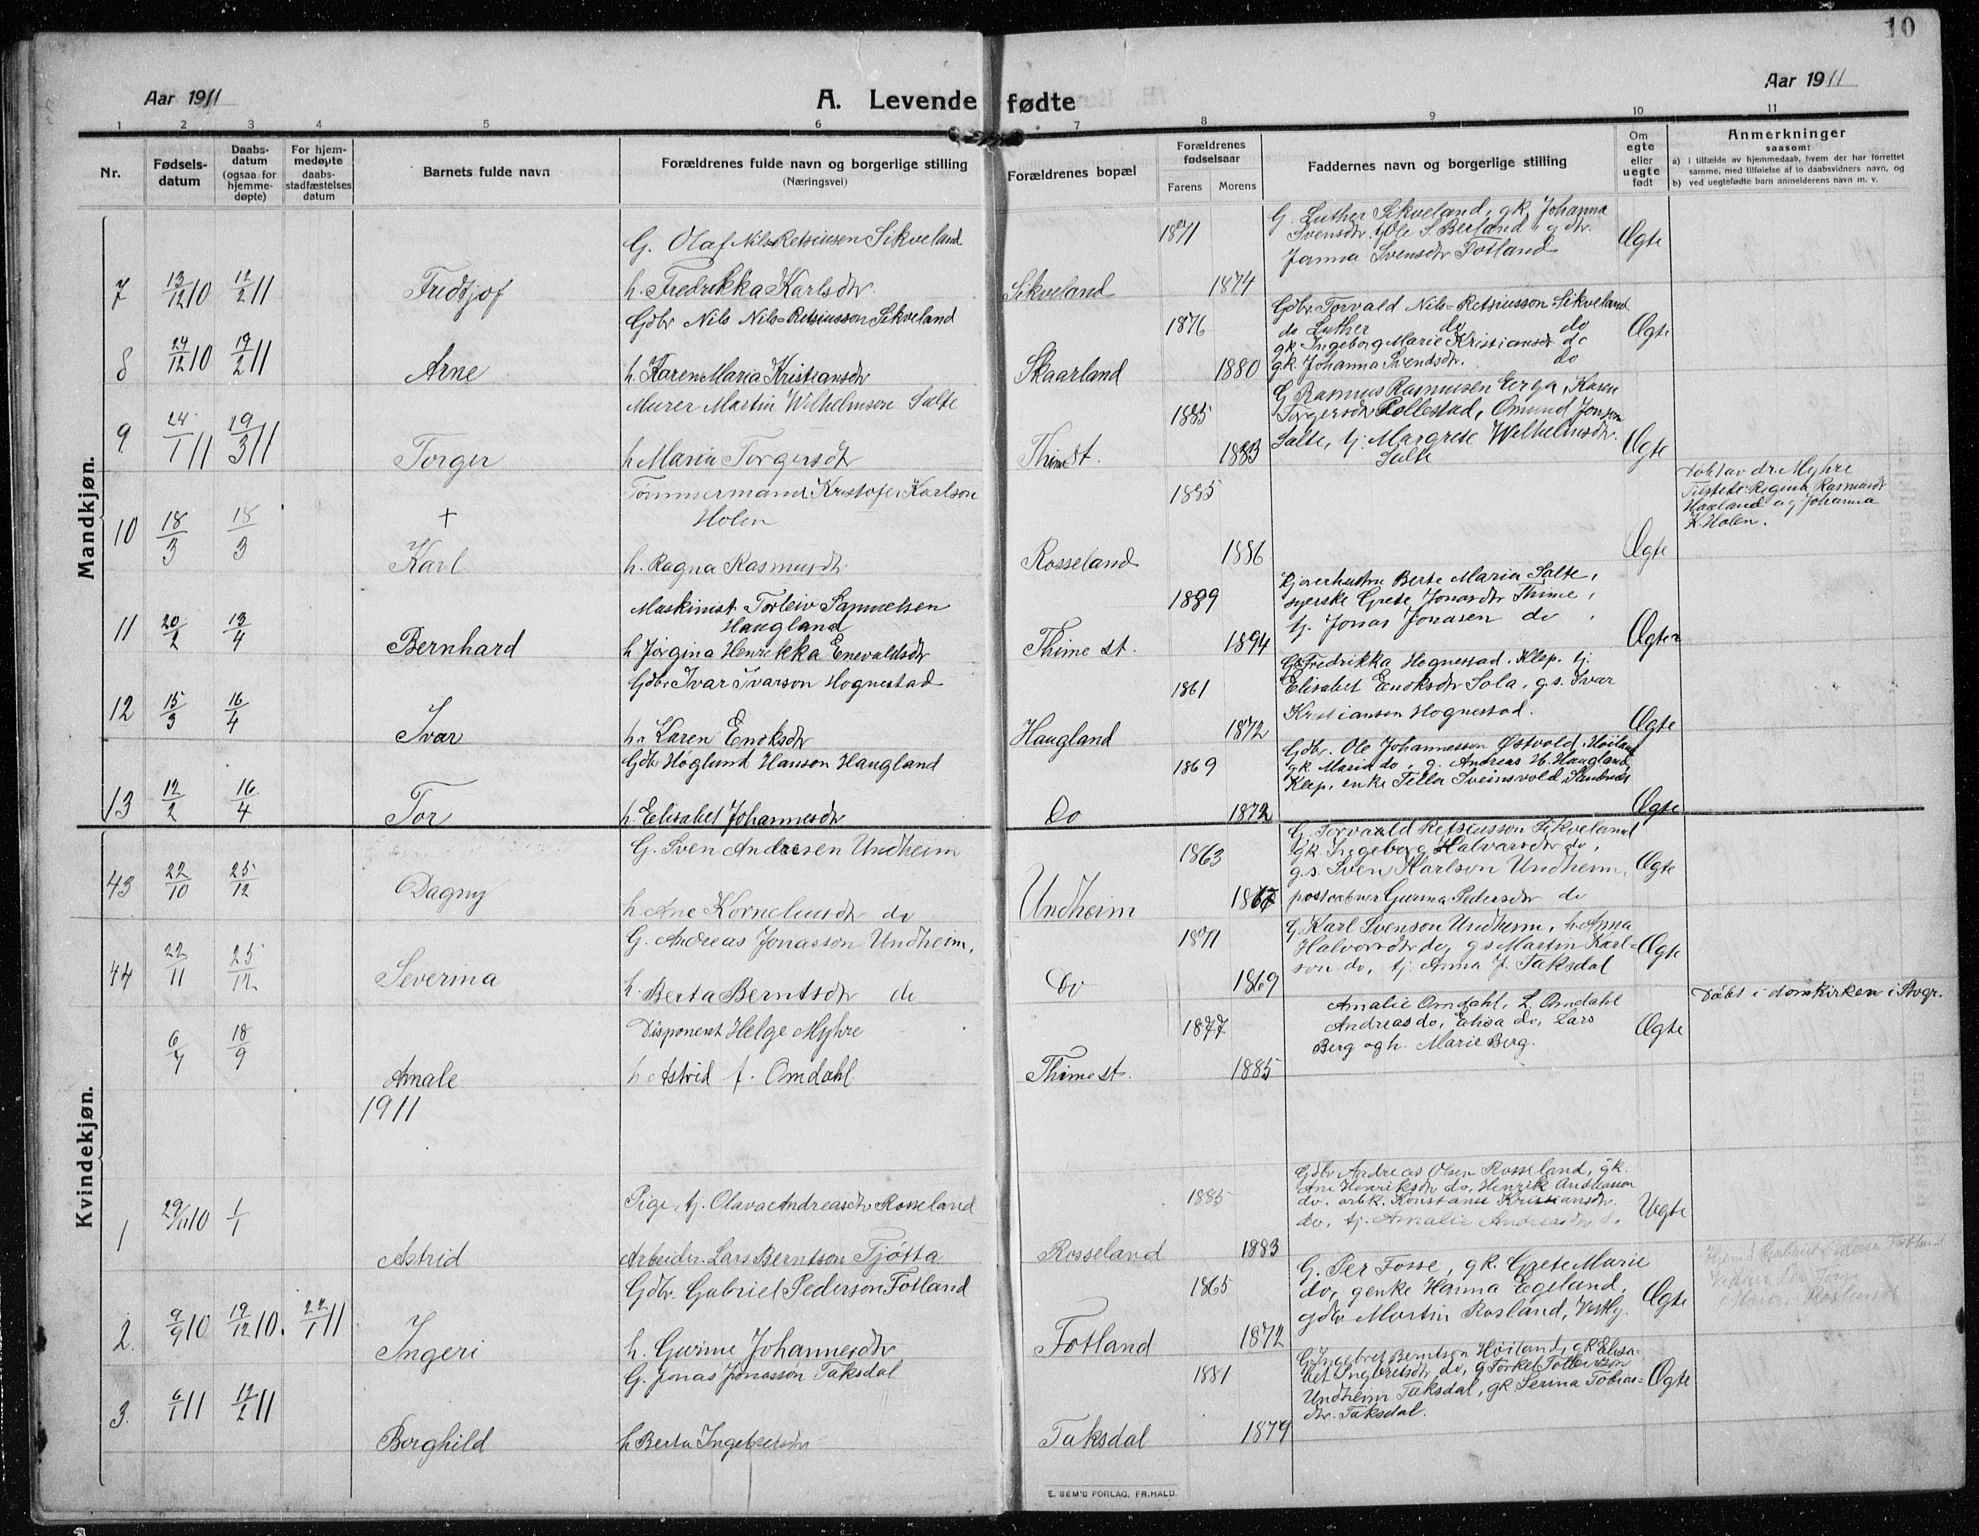 10
Aar 1911
A. Levende fødte
Aar 1911
1 2 3 4 5 6 7 8 9 10 11
Nr.
Fødsels-
datum
Daabs-
datum
(ogsaa for
hjemme-
døpte)
For hjem-
medøpte
daabs-
stadfæstelses
datum
Barnets fulde navn
Forældrenes fulde navn og borgerlige stilling
(Næringsvei)
Forældrenes bopæl
Forældrenes
fødselsaar
Farens Morens
Faddernes navn og borgerlige stilling
Om
egte
eller
uegte
født
Anmerkninger
saasom:
a) i tilfælde av hjemmedaab, hvem der har forrettet
samme, med tilføielse af to daabsvidners navn, og
b) ved uegtefødte barn anmelderens navn m. v.
Mandkjøn.
7 13/12 10 12/2 11 Fridtjof
G. Olaf Nils-Retsiusen Sikveland
h. Fredrikka Karlsdtr.
Sikveland 1871 1874
G. Luther Sikveland, gk. Johanna
Svensdtr. Ole S. Berland, g.dtr.
Janna Svensdtr Fotland
Ægte
8 24/12 10 19/2 11 Arne
Gdbr Nils Nils-Retsiusson Sikveland
h. Karen Maria Kristiansdtr
Skaarland 1876 1880
Gdbr. Torvald Nils-Retsiusson Sikveland
do Luther do do
gk Ingeborg Marie Kristiansdtr do
gk. Johanna Svendsdtr. do
Ægte
9 24/1 11 19/3 11 Torger
Murer Martin Wilhelmson Salte
h Maria Torgersdtr
Thime st. 1885 1883
G Rasmus Rasmussen Erga, Karen
Torgersdtr Rollestad, Omund Jonson
Salte, tj. Margrete Wilhelmsdtr.
Salte
Ægte
10 18/3 18/3 + Karl
Tømmermand Kristofer Karlson
Holen
h. Ragna Rasmusdtr
Rosseland 1885 1886
Ægte
Døbt av dr. Myhre
Tilstede Regina Rasmusdtr
Haaland og Johanna
K. Holen.
11 20/2 13/4 Bernhard
Maskinist Torleiv Samuelsen
Haugland
h Jørgina Henrikka Enevaldsdtr
Thime st. 1889 1894
Gjørerhustru Berte Maria Salte,
syerske Grete Jonasdtr Thime,
tj. Jonas Jonasen do
Ægte
12 15/3 16/4 Ivar
Gdbr Ivar Ivarson Hognestad
h. Karen Enoksdtr
Haugland 1861 1872
Gk Fredrikka Hognestad, Klep. tj.
Elisabet Enoksdtr Sola, g.s. Ivar
Kristiansen Hognestad.
Ægte
13 12/2 16/4 Tor
Gdbr Høglund Hanson Haugland
h. Elisabet Johannesdtr
Do 1869 1872
Gdbr. Ole Johannesson Østvold, Høiland
gk. Maria do, g. Andreas H. Haugland
Klep, enke Tella Sveinsvold, Sandnes
Ægte
Kvindekjøn.
43 22/10 25/12 Dagny
G. Sven Andresen Undheim
h Ane Korneliusdtr do
Undheim 1863 1867
G. Torvald Retsiusson Sikveland
gk. Ingeborg Halvarsdtr do,
g.s. Sven Karlson Undheim,
postaabner Gurina Pedersdtr do
Ægte
44 22/11 25/12 Severina
G. Andreas Jonasson Undheim,
h. Berta Berntsdtr do
Do 1871 1869
G. Karl Svenson Undheim, h. Anna
Halvorsdtr do, gs Martin Karl-
son do, tj. Anna J. Taksdal
Ægte
6/7 18/9 Amale
Disponent Helge Myhre
h Astrid f. Omdahl
Thime st. 1877 1885
Amalie Omdahl, L. Omdahl
Andreas do, Elisa do, Lars
Berg og h. Marie Berg.
Ægte
Døbt i domkirken i Stvgr.
1911
1 29/11 10 1/1 Astrid
Pige, tj. Olava Andreasdtr Rosseland
Arbeider Lars Berntson Tjøtta
Rosseland 1885 1883
Gdbr Andreas Olsen Rosseland, gk.
Ane Henriksdtr do, Henrik Andreasson
do, arbk. Konstanse Kristiansdtr.
do, tj. Amalie Andreasdtr do
Uegte
2. 9/9 10 19/12 10. 22/1 11 Ingeri
Gdbr. Gabriel Pederson Fotland
h. Gurine Johannesdtr
Fotland 1865 1872
G. Per Fosse, gk. Grete Marie
do, genke Hanna Egeland,
gdbr Martin Rosland, Vestly.
Ægte
3. 6/1 11 12/2 11 Borghild
G. Jonas Jonasson Taksdal
h Berta Ingebretsdtr
Taksdal 1881 1879
G. Ingebret Berntson Høiland, gk Elisa-
bet Ingebretsdtr do, g Torkel Tollevson
Undheim Taksdal, gk Serina Tobias-
dtr. Taksdal.
Ægte
E. SEM'S FORLAG, FR.HALD.